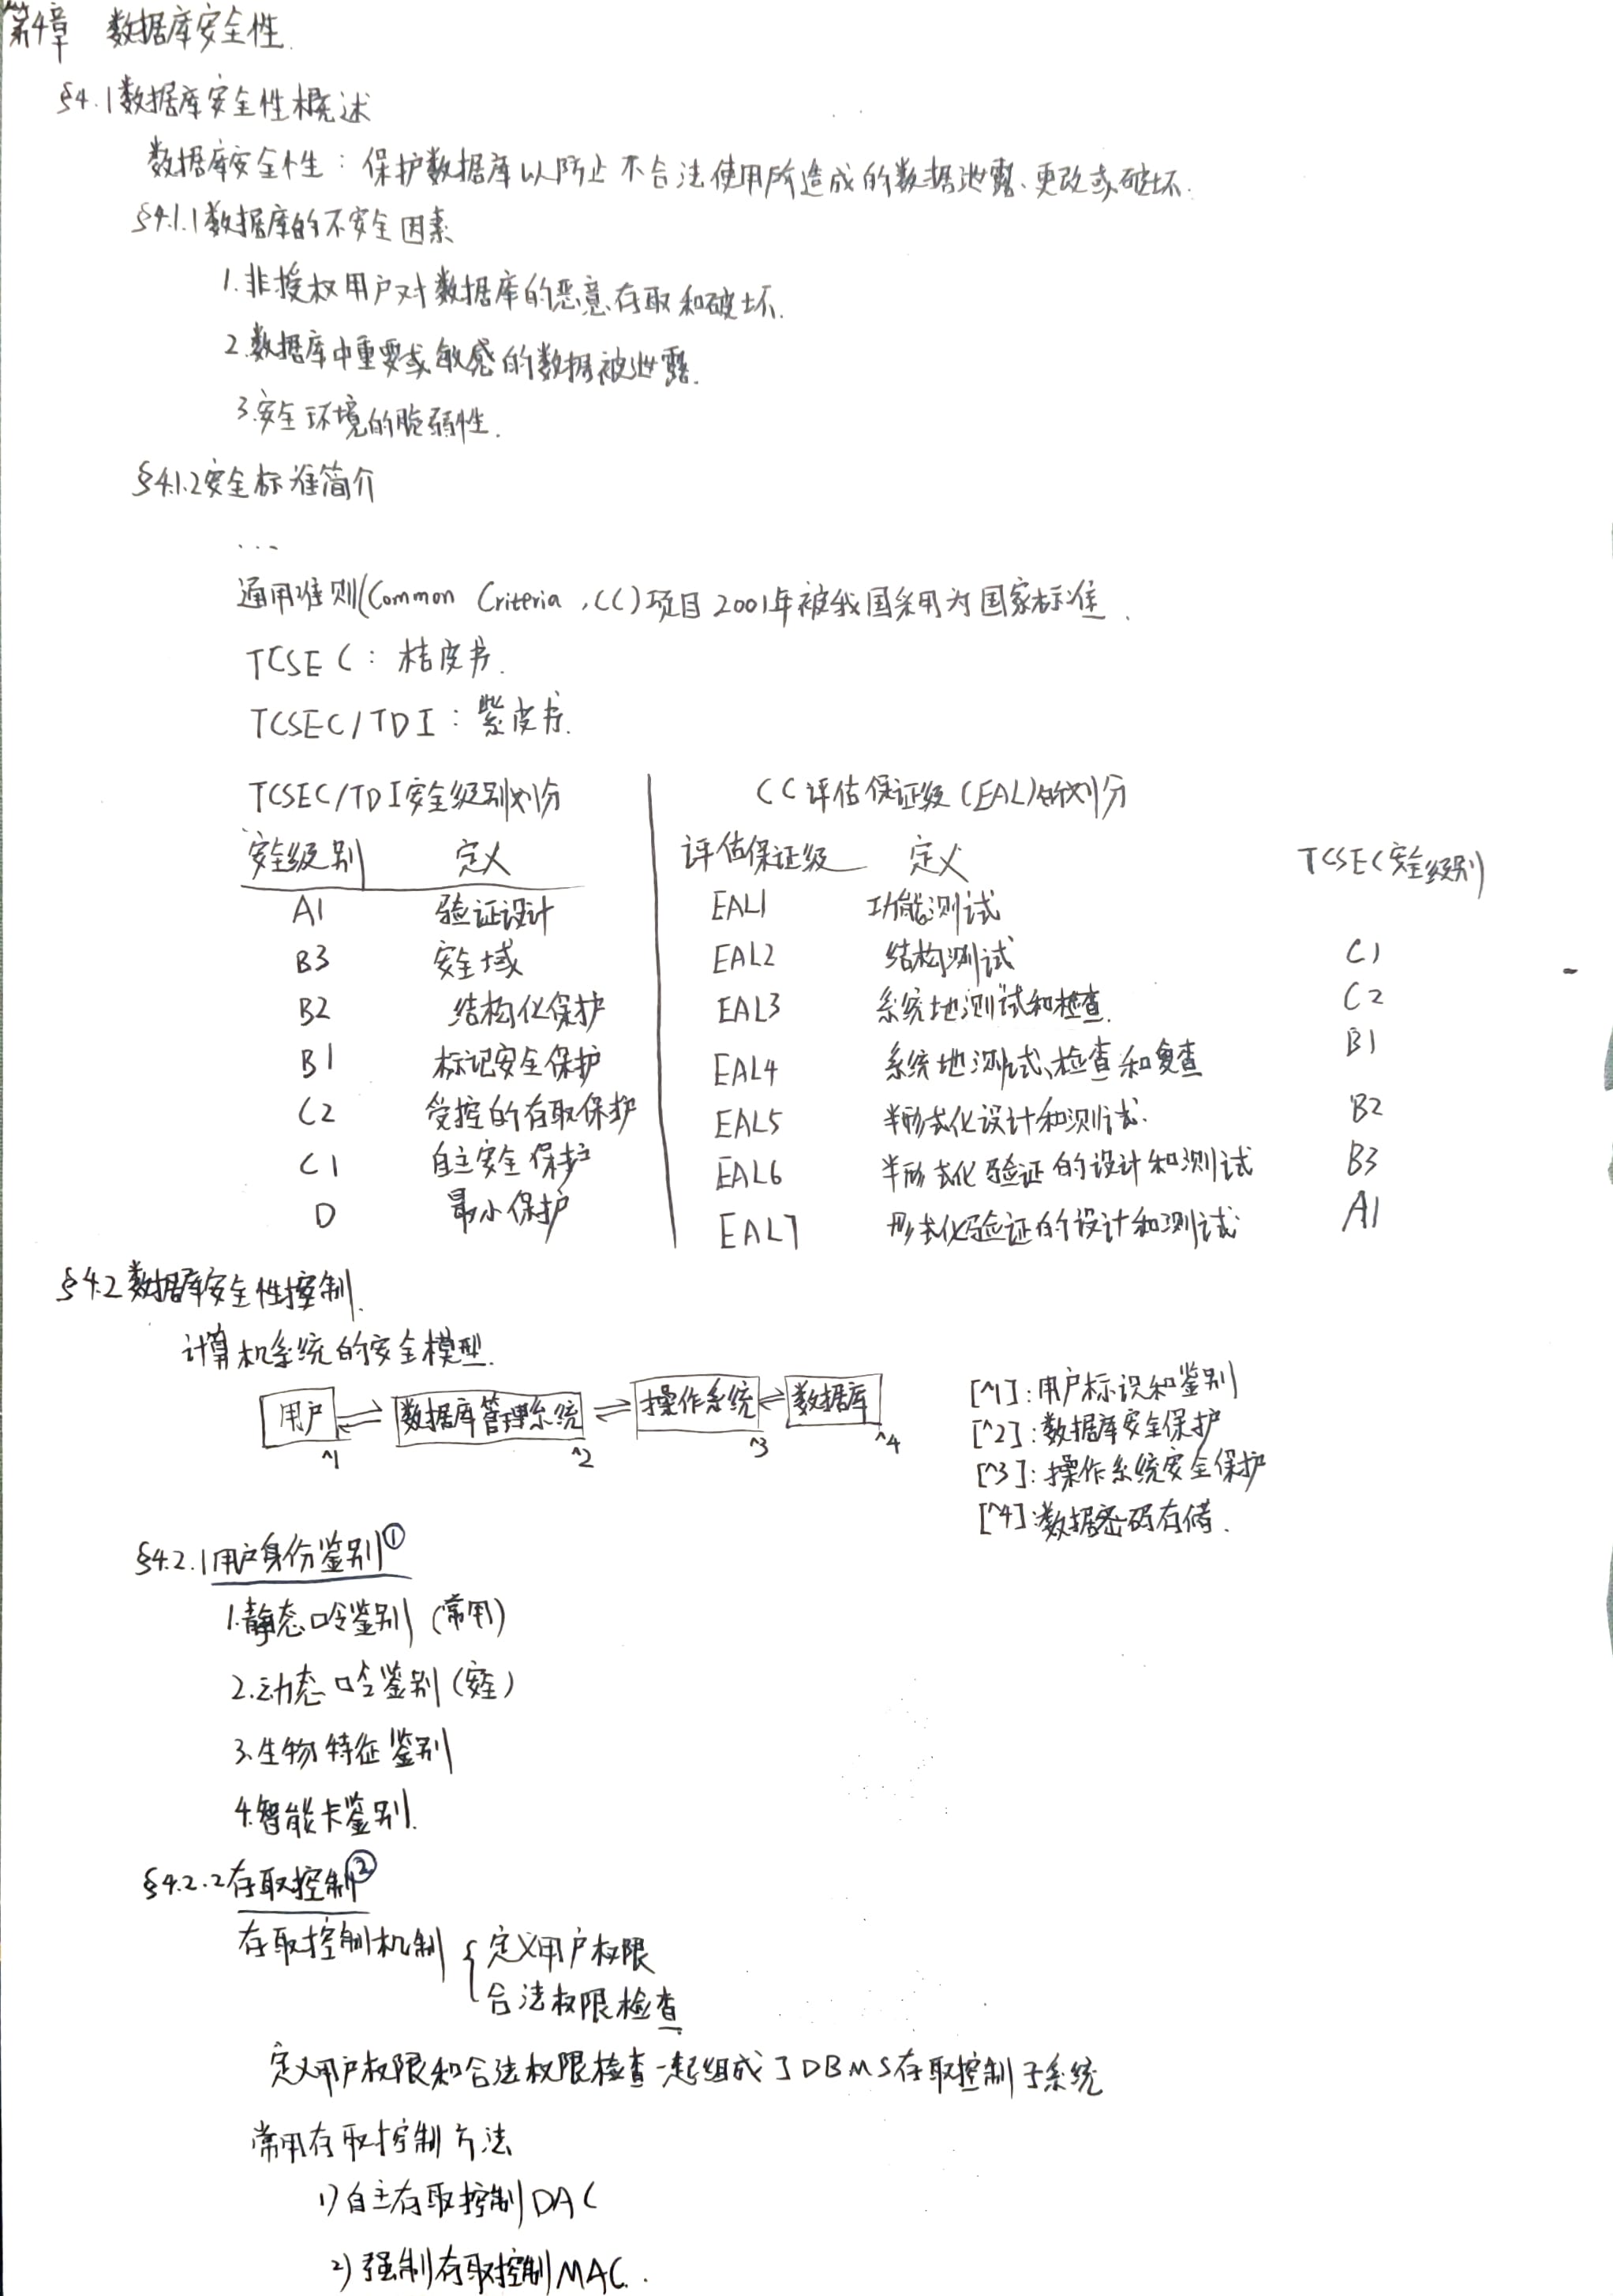 第4章 数据库安全性.
§4.1数据库安全性概述
数据库安全性：保护数据库以防止不合法使用所造成的数据泄露、更改或破坏.
§4.1.1数据库的不安全因素
1.非授权用户对数据库的恶意存取和破坏.
2.数据库中重要或敏感的数据被泄露.
3.安全环境的脆弱性.
§4.1.2安全标准简介
...
通用准则(Common Criteria,CC)项目2001年被我国采用为国家标准.
TCSEC：桔皮书.
TCSEC/TDI：紫皮书.
TCSEC/TDI安全级别划分 CC评估保证级(EAL)的划分
安全级别 定义 评估保证级 定义 TCSEC(安全级别)
A1 验证设计 EAL1 功能测试
B3 安全域 EAL2 结构测试 C1
B2 结构化保护 EAL3 系统地测试和检查. C2
B1 标记安全保护 EAL4 系统地测试、检查和复查 B1
C2 受控的存取保护 EAL5 半形式化设计和测试. B2
C1 自主安全保护 EAL6 半形式化验证的设计和测试 B3
D 最小保护 EAL7 形式化验证的设计和测试 A1
§4.2数据库安全性控制.
计算机系统的安全模型.
用户 ⇌ 数据库管理系统 ⇌ 操作系统 ⇌ 数据库
^1 ^2 ^3 ^4
[^1]:用户标识和鉴别
[^2]:数据库安全保护
[^3]:操作系统安全保护
[^4]:数据密码存储.
§4.2.1用户身份鉴别①
1.静态口令鉴别(常用)
2.动态口令鉴别(安全)
3.生物特征鉴别
4.智能卡鉴别.
§4.2.2存取控制②
存取控制机制{定义用户权限
合法权限检查
定义用户权限和合法权限检查一起组成了DBMS存取控制子系统
常用存取控制方法
1)自主存取控制DAC
2)强制存取控制MAC.